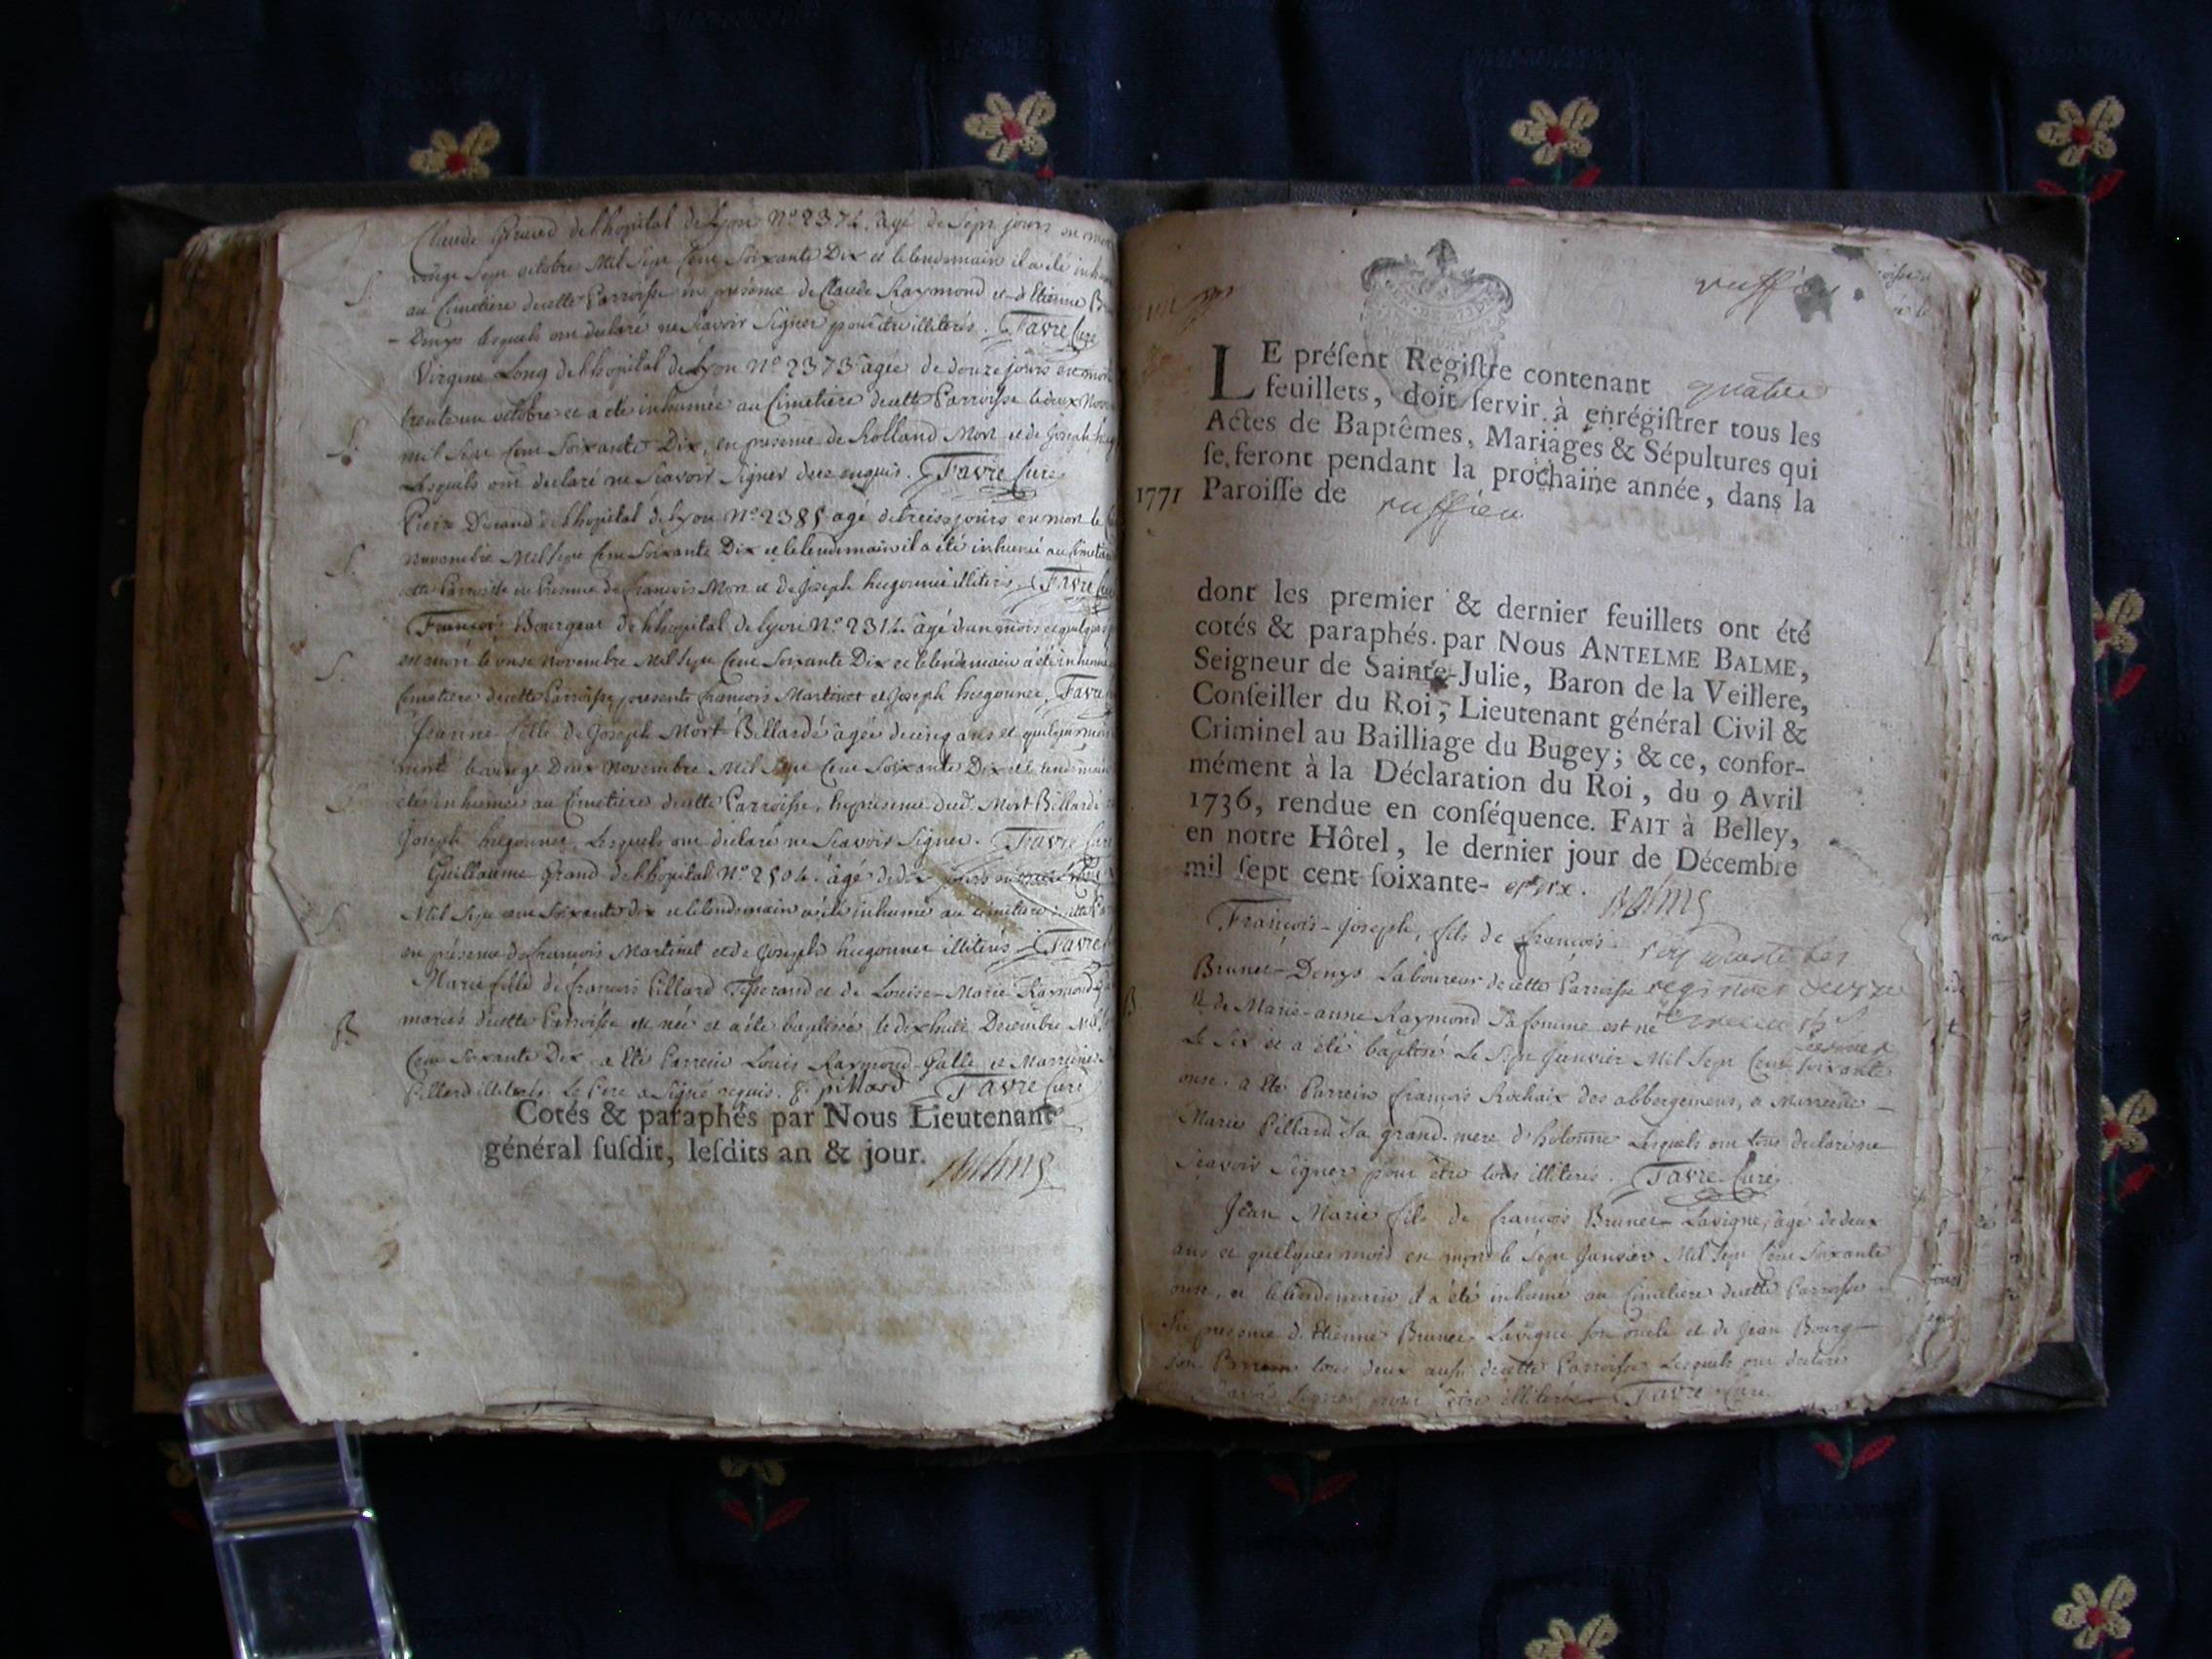 Claude Girard de l'hopital de Lyon N° 2374. agé de Sept jours est mort
Sept octobre Mil Sept Cent Soixante Dix et le lendemain il a été
S.
au Cimetiere decette Parroisse en présence de Claude Raymond et d'Etienne
Denys lesquels ont declaré ne Scavoir Signer pour être illiterés. Favre Curé
Virgine Long de l'hopital de Lyon N° 2373 agée de douze jours est
trente un octobre et a été inhumée au Cimetiere decette Parroisse le deux
S.
mil Sept Cent Soixante Dix, en presence de Rolland Mort et de Joseph
Lesquels ont declaré ne Scavoir Signer de ce enquis. Favre Curé
de l'hopital de Lyon N° 2385 agé de treise jours est mort le
S.
novembre Mil Sept Cent Soixante Dix et le lendemain il a été inhumé au
cette Parroisse en Presence de francois Mort et de Joseph hugonnet illiterés. Favre Curé
François Bourgeat de l'hopital de Lyon N° 2314. agé d'un mois et quelques
S.
est mort le onse novembre Mil Sept Cent Soixante Dix et le lendemain a été inhumé
Cimetiere decette Parroisse, presents francois Martinet et Joseph hugonnet. Favre
Jeanne fille de Joseph Mort-Billardé agée de cinq ans et quelques mois
Deux Novembre Mil Sept Cent Soixante Dix
S.
été inhumée au Cimetiere decette Parroisse, en presence dud. Mort Billardé
Joseph hugonnet, Lesquels ont declaré ne Scavoir Signer. Favre Curé
Guillaume Grand de l'hopital N° 2504. agé de dix jours
S.
Mil Sept cent Soixante dix et le lendemain a été inhumé au cimetiere
en présence de francois Martinet et de Joseph hugonnet illiterés. Favre
Marie fille de francois Pillard Tisserand et de Louise-Marie Raymond
B
mariés decette Parroisse est née et a été baptisée le dix huit Decembre
Cent Soixante Dix, a été Parrein Louis Raymond-Galle et Marreine
Pillard illiterés. Le Pere a Signé requis. f. pillard Favre Curé
Cotés & paraphés par Nous Lieutenant
général ſuſdit, leſdits an & jour.
ruffieu
LE préſent Regiſtre contenant quatre
feuillets, doit ſervir à enrégiſtrer tous les
Actes de Baptêmes, Mariages & Sépultures qui
ſe feront pendant la prochaine année, dans la
1771 Paroiſſe de ruffieu
dont les premier & dernier feuillets ont été
cotés & paraphés par Nous ANTELME BALME,
Seigneur de Sainte-Julie, Baron de la Veillere,
Conſeiller du Roi, Lieutenant général Civil &
Criminel au Bailliage du Bugey; & ce, confor-
mément à la Déclaration du Roi, du 9 Avril
1736, rendue en conſéquence. FAIT à Belley,
en notre Hôtel, le dernier jour de Décembre
mil ſept cent ſoixante- et dix.
François-Joseph, fils de françois
Brunet-Denys Laboureur decette Parroisse
B
et de Marie-anne Raymond Sa femme est né
Le Six et a été baptisé Le Sept Janvier Mil Sept Cent Soixante
onse. a été Parrein françois Rochaix des abbergemens, a Marreine
Marie Pillard Sa grand-mere d'hotonne Lesquels ont tous declaré ne
Scavoir Signer pour être tous illiterés. Favre Curé
Jean Marie fils de françois Brunet-Lavigne, agé de deux
ans et quelques mois est mort le Sept Janvier Mil Sept Cent Soixante
onse, et le lendemain il a été inhumé au Cimetiere decette Parroisse
En presence d'Etienne Brunet-Lavigne son oncle et de Jean Bourg-
tous deux aussi decette Parroisse Lesquels ont declaré
Signer pour être illiterés Favre Curé